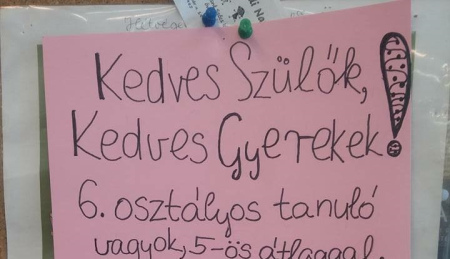 Kedves Szülők,
Kedves Gyerekek!
6. osztályos tanuló
vagyok, 5-ös átlaggal.